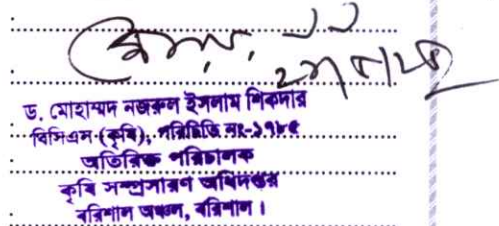 ড. মোহাম্মদ নজরুল ইসলাম শিকদার
বিসিএস (কৃষি), পরিচিতি নং-১৭৮৫
অতিরিক্ত পরিচালক
কৃষি সম্প্রসারণ অধিদপ্তর
বরিশাল অঞ্চল, বরিশাল।